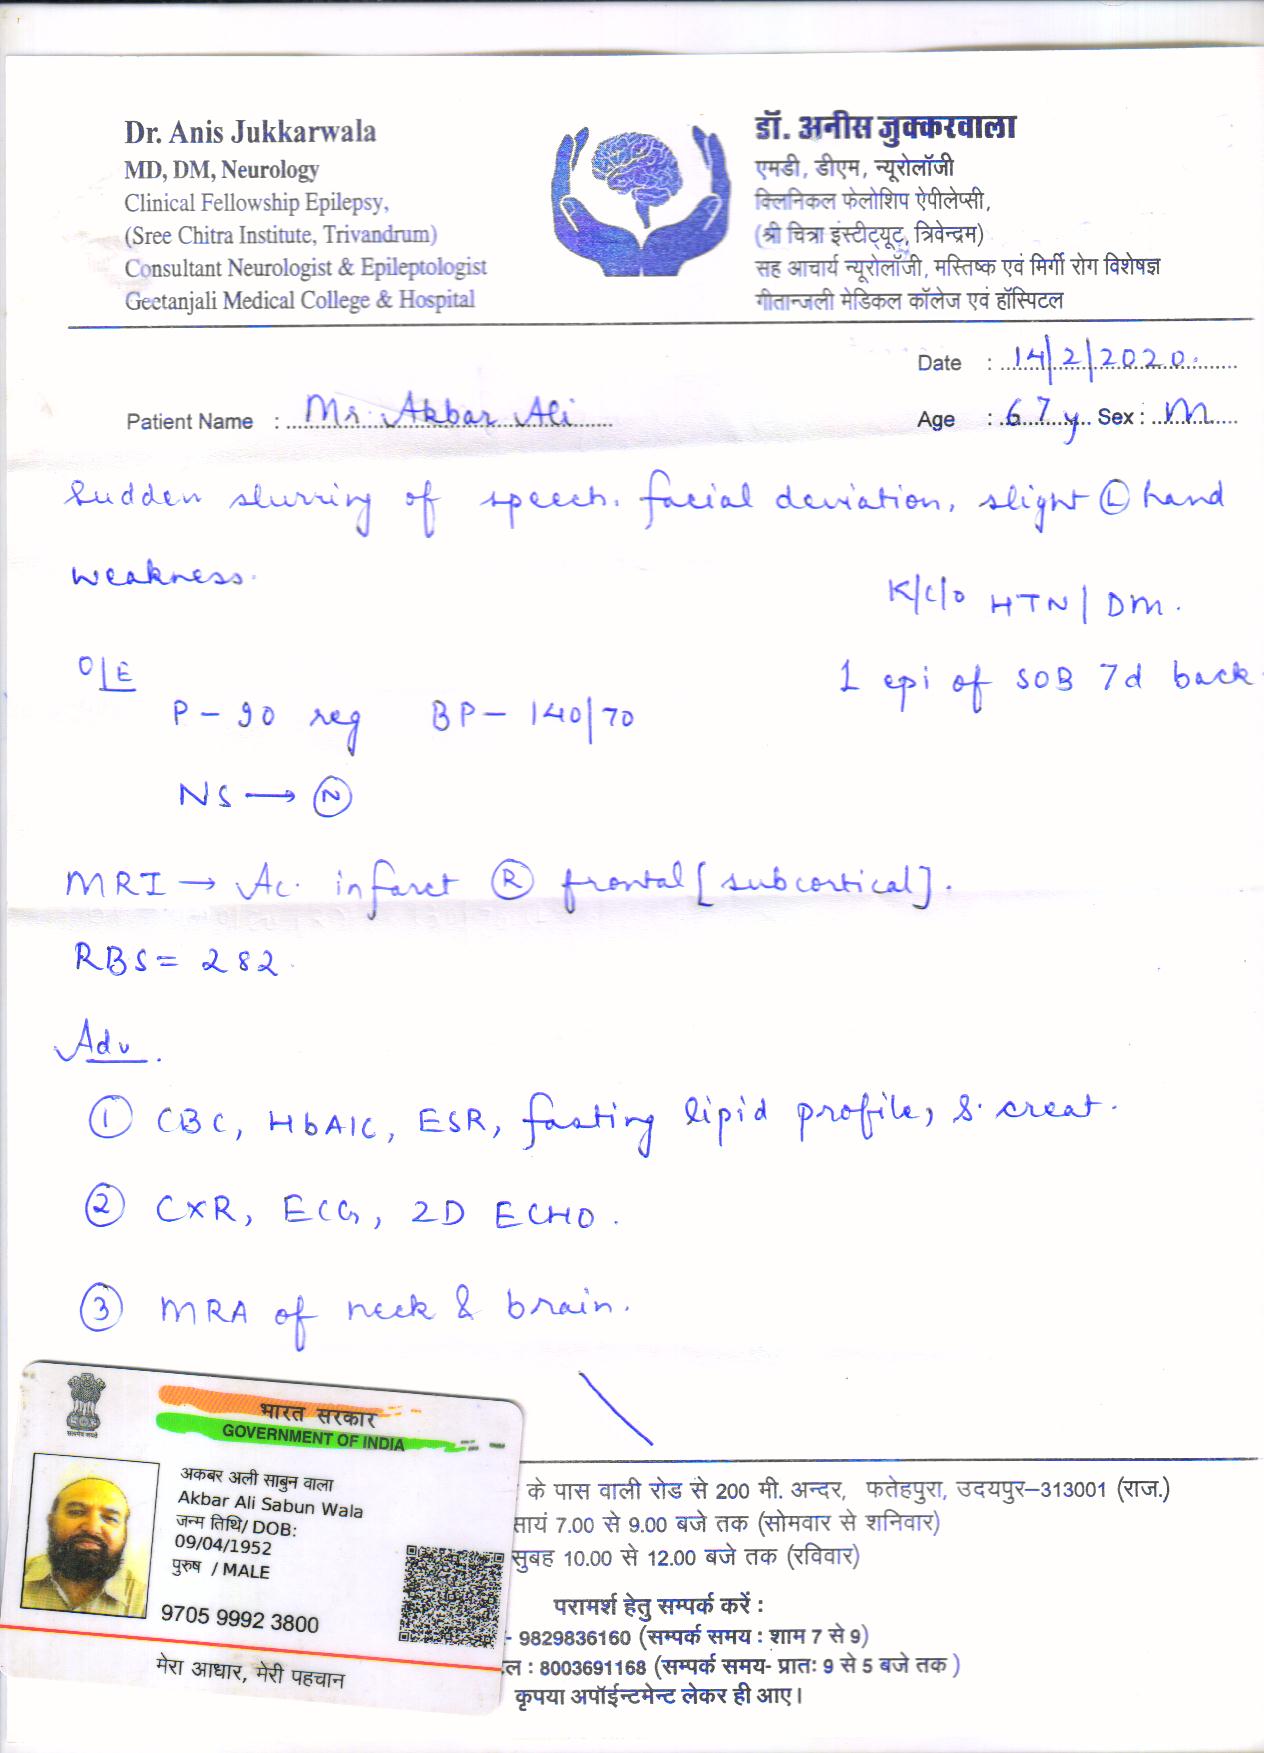 Dr. Anis Jukkarwala
MD, DM, Neurology
Clinical Fellowship Epilepsy,
(Sree Chitra Institute, Trivandrum)
Consultant Neurologist & Epileptologist
Geetanjali Medical College & Hospital
डॉ. अनीस जुक्करवाला
एमडी, डीएम, न्यूरोलॉजी
क्लिनिकल फेलोशिप ऐपीलेप्सी,
(श्री चित्रा इंस्टीट्यूट, त्रिवेन्द्रम)
सह आचार्य न्यूरोलॉजी, मस्तिष्क एवं मिर्गी रोग विशेषज्ञ
गीतान्जली मेडिकल कॉलेज एवं हॉस्पिटल
Date : 14/2/2020.
Patient Name : Mr. Akbar Ali
Age : 67y Sex : M
Sudden slurring of speech, facial deviation, slight Ⓛ hand
weakness.
K/C/O HTN/DM.
O/E
1 epi of SOB 7d back
P - 90 reg BP - 140/70
NS → Ⓝ
MRI → Ac. infarct Ⓡ frontal [subcortical].
RBS = 282.
Adv.
① CBC, HbA1C, ESR, fasting lipid profile, S. creat.
② CXR, ECG, 2D ECHO.
③ MRA of neck & brain.
भारत सरकार
GOVERNMENT OF INDIA
सत्यमेव जयते
अकबर अली साबुन वाला
Akbar Ali Sabun Wala
जन्म तिथि/ DOB:
09/04/1952
पुरुष / MALE
9705 9992 3800
मेरा आधार, मेरी पहचान
के पास वाली रोड से 200 मी. अन्दर, फतेहपुरा, उदयपुर-313001 (राज.)
सायं 7.00 से 9.00 बजे तक (सोमवार से शनिवार)
सुबह 10.00 से 12.00 बजे तक (रविवार)
परामर्श हेतु सम्पर्क करें :
- 9829836160 (सम्पर्क समय : शाम 7 से 9)
ल : 8003691168 (सम्पर्क समय- प्रातः 9 से 5 बजे तक )
कृपया अपॉईन्टमेन्ट लेकर ही आए।